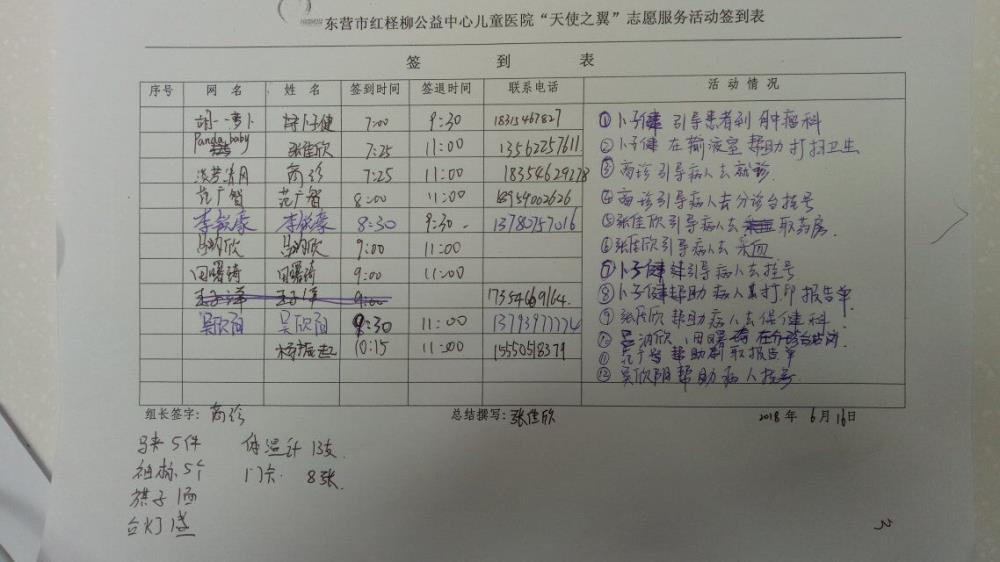 东营市红柽柳公益中心儿童医院“天使之翼”志愿服务活动签到表
签 到 表
序号 网 名 姓 名 签到时间 签退时间 联系电话 活 动 情 况
胡一萝卜 卜子健 7:00 9:30 18315467827
Panda baby 张佳欣 7:25 11:00 13562257611
淡梦清月 商诊 7:25 11:00 18354629278
范广智 范广智 8:00 11:00 18954002626
李毅豪 李毅豪 8:30 9:30 13780757016
马明欣 马明欣 9:00 11:00
田曙琦 田曙琦 9:00 11:00
王子泽 王子泽 9:00 17354669164
吴欣阳 吴欣阳 9:30 11:00 13793977774
杨振起 10:15 11:00 15550518379
①卜子健 引导患者到肿瘤科
②卜子健 在输液室帮助打扫卫生
③商诊引导病人去就诊
④商诊引导病人去分诊台挂号
⑤张佳欣引导病人去取药房
⑥张佳欣引导病人去采血
⑦卜子健引导病人去挂号
⑧卜子健帮助病人打印报告单
⑨张佳欣帮助病人去保健科
⑩马明欣、田曙琦在分诊台
⑪范广智帮助取报告单
⑫吴欣阳帮助病人挂号
组长签字：商诊 总结撰写：张佳欣 2018年 6月16日
马夹 5件 体温计 13支
袖标 5个 门卡 8张
旗子 1面
台灯 1盏
3